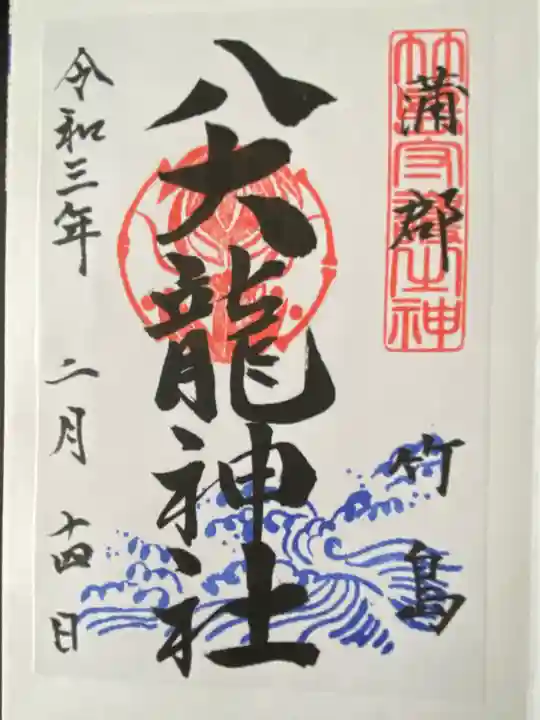 蒲郡
竹島
八大龍神社
令和三年
二月
十四日